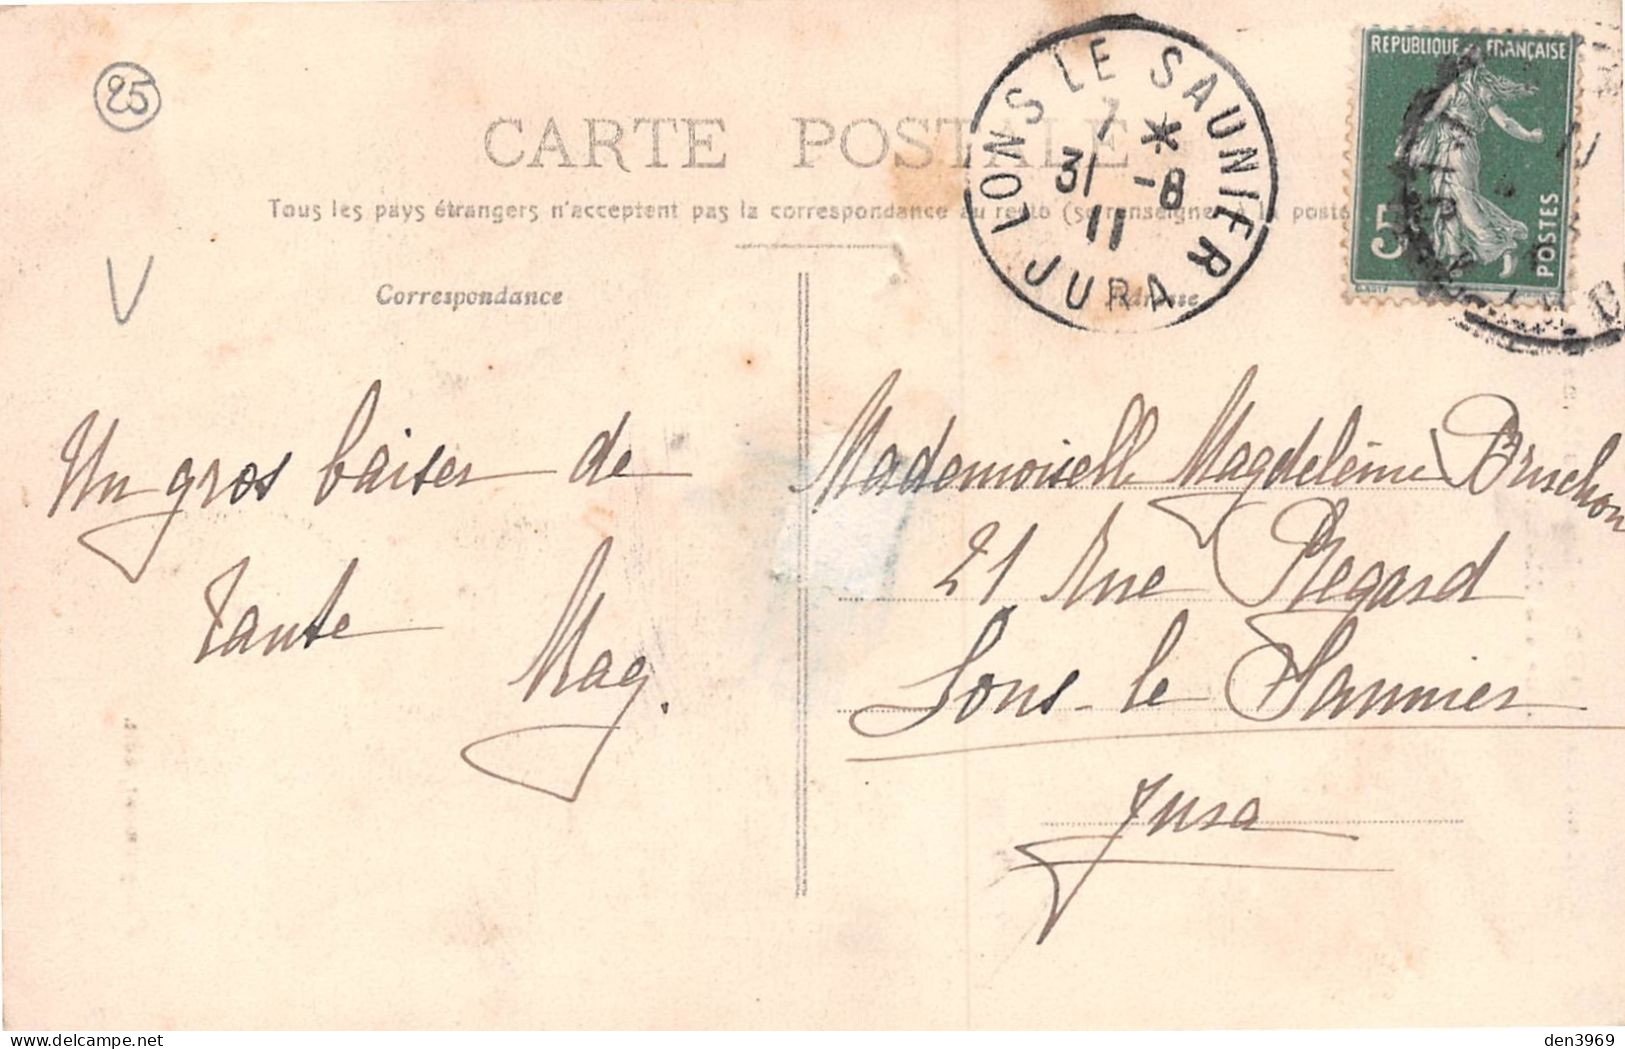 25
CARTE POSTALE
Tous les pays étrangers n'acceptent pas la correspondance au recto (se renseigner à la poste
V
Correspondance
Adresse
LONS LE SAUNIER
7 *
31 -8
11
JURA
REPUBLIQUE FRANÇAISE
5
POSTES
Un gros baiser de
tante
Mag.
Mademoiselle Magdeleine Bruchon
21 Rue Regard
Lons-le Saunier
Jura
den3969